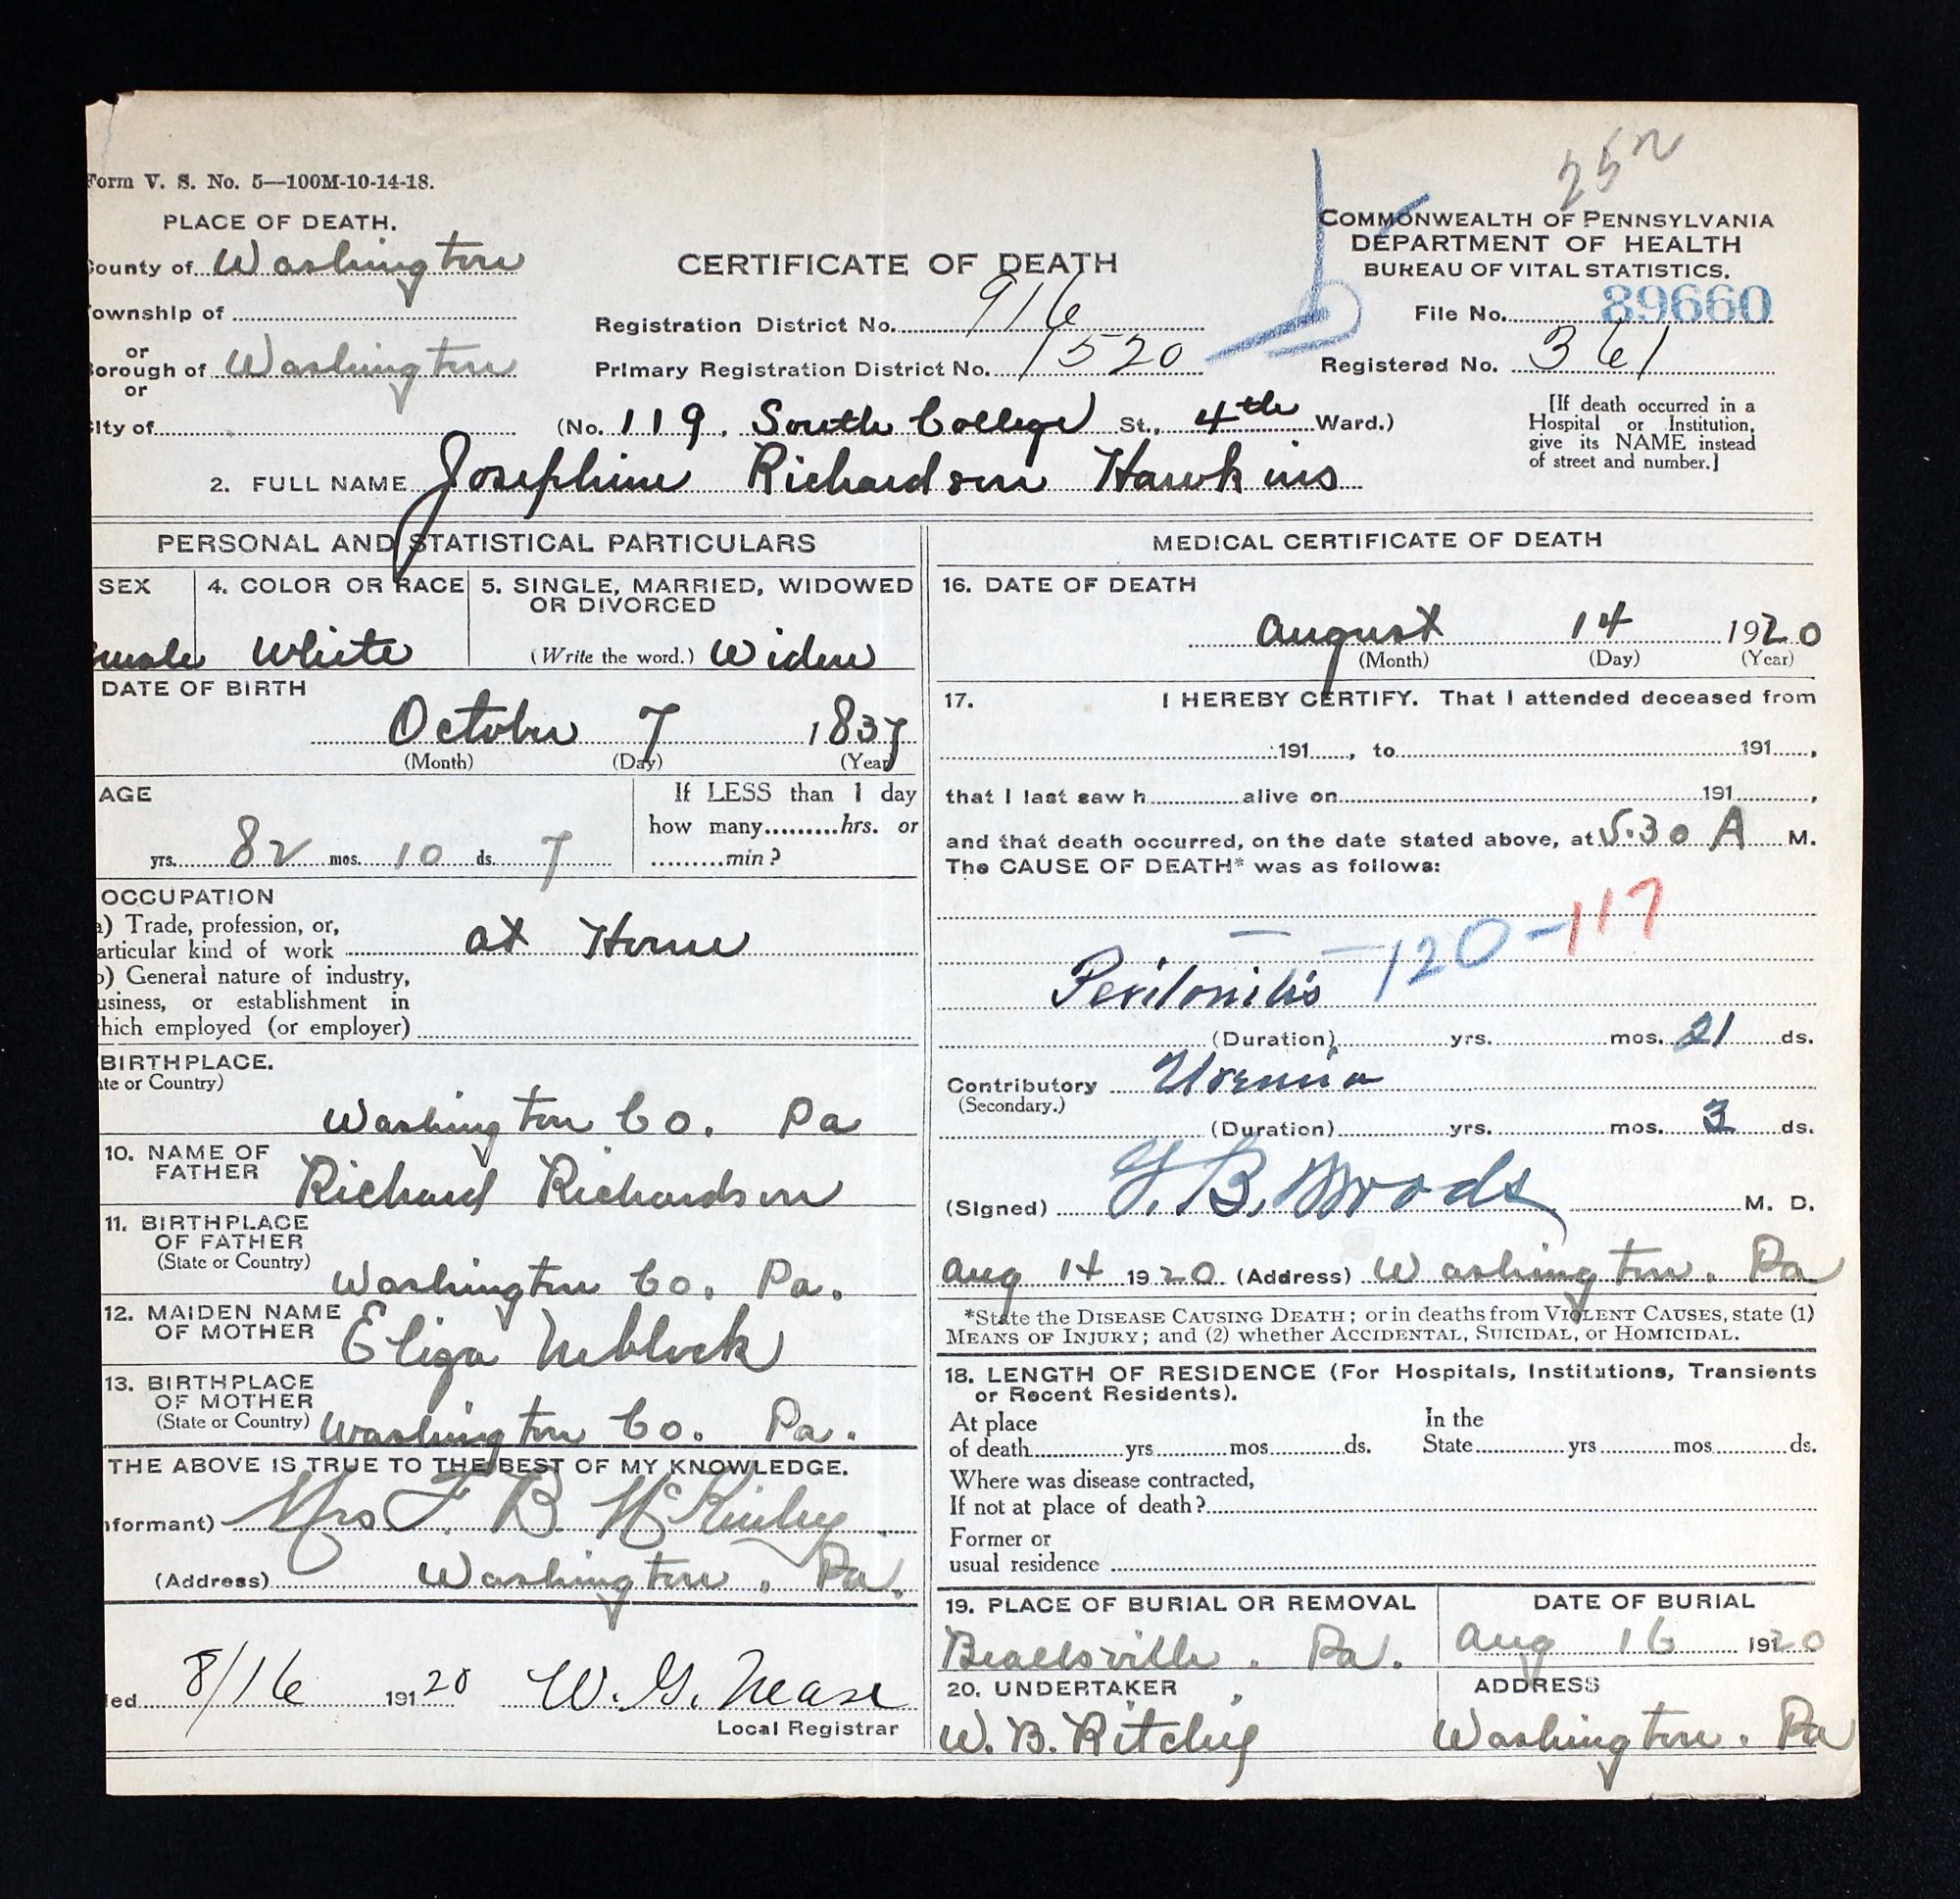 25n
Form V. S. No. 5—100M-10-14-18.
PLACE OF DEATH.
County of Washington
ownship of
or
orough of Washington
or
ity of
CERTIFICATE OF DEATH
Registration District No. 916
Primary Registration District No. 1520
COMMONWEALTH OF PENNSYLVANIA
DEPARTMENT OF HEALTH
BUREAU OF VITAL STATISTICS.
File No. 89660
Registered No. 361
(No. 119. South College St., 4th Ward.)
[If death occurred in a
Hospital or Institution,
give its NAME instead
of street and number.]
2. FULL NAME Josephine Richardson Hawkins
PERSONAL AND STATISTICAL PARTICULARS
SEX
emale
4. COLOR OR RACE
White
5. SINGLE, MARRIED, WIDOWED
OR DIVORCED
(Write the word.) Widow
DATE OF BIRTH
October 7 1837
(Month) (Day) (Year)
AGE
yrs. 82 mos. 10 ds. 7
If LESS than 1 day
how many.........hrs. or
.........min?
OCCUPATION
a) Trade, profession, or,
articular kind of work at Home
b) General nature of industry,
usiness, or establishment in
hich employed (or employer)
BIRTHPLACE.
ate or Country)
Washington Co. Pa
10. NAME OF
FATHER Richard Richardson
11. BIRTHPLACE
OF FATHER
(State or Country) Washington Co. Pa.
12. MAIDEN NAME
OF MOTHER Eliza Neblock
13. BIRTHPLACE
OF MOTHER
(State or Country) Washington Co. Pa.
THE ABOVE IS TRUE TO THE BEST OF MY KNOWLEDGE.
nformant) Mrs F. B. McKinley
(Address) Washington, Pa.
led 8/16 191 20 W. G. Nease
Local Registrar
MEDICAL CERTIFICATE OF DEATH
16. DATE OF DEATH
August 14 1920
(Month) (Day) (Year)
17. I HEREBY CERTIFY. That I attended deceased from
191......, to 191......,
that I last saw h............alive on 191......,
and that death occurred, on the date stated above, at 5.30 A M.
The CAUSE OF DEATH* was as follows:
120-117
Peritonitis
(Duration) yrs. mos. 21 ds.
Contributory Uremia
(Secondary.)
(Duration) yrs. mos. 3 ds.
(Signed) G. B. Woods M. D.
Aug 14 1920 (Address) Washington, Pa
*State the DISEASE CAUSING DEATH; or in deaths from VIOLENT CAUSES, state (1)
MEANS OF INJURY; and (2) whether ACCIDENTAL, SUICIDAL, or HOMICIDAL.
18. LENGTH OF RESIDENCE (For Hospitals, Institutions, Transients
or Recent Residents).
At place In the
of death............yrs............mos............ds. State............yrs............mos............ds.
Where was disease contracted,
If not at place of death?
Former or
usual residence
19. PLACE OF BURIAL OR REMOVAL
Beallsville, Pa.
DATE OF BURIAL
Aug 16 1920
20. UNDERTAKER
W. B. Ritchey
ADDRESS
Washington, Pa